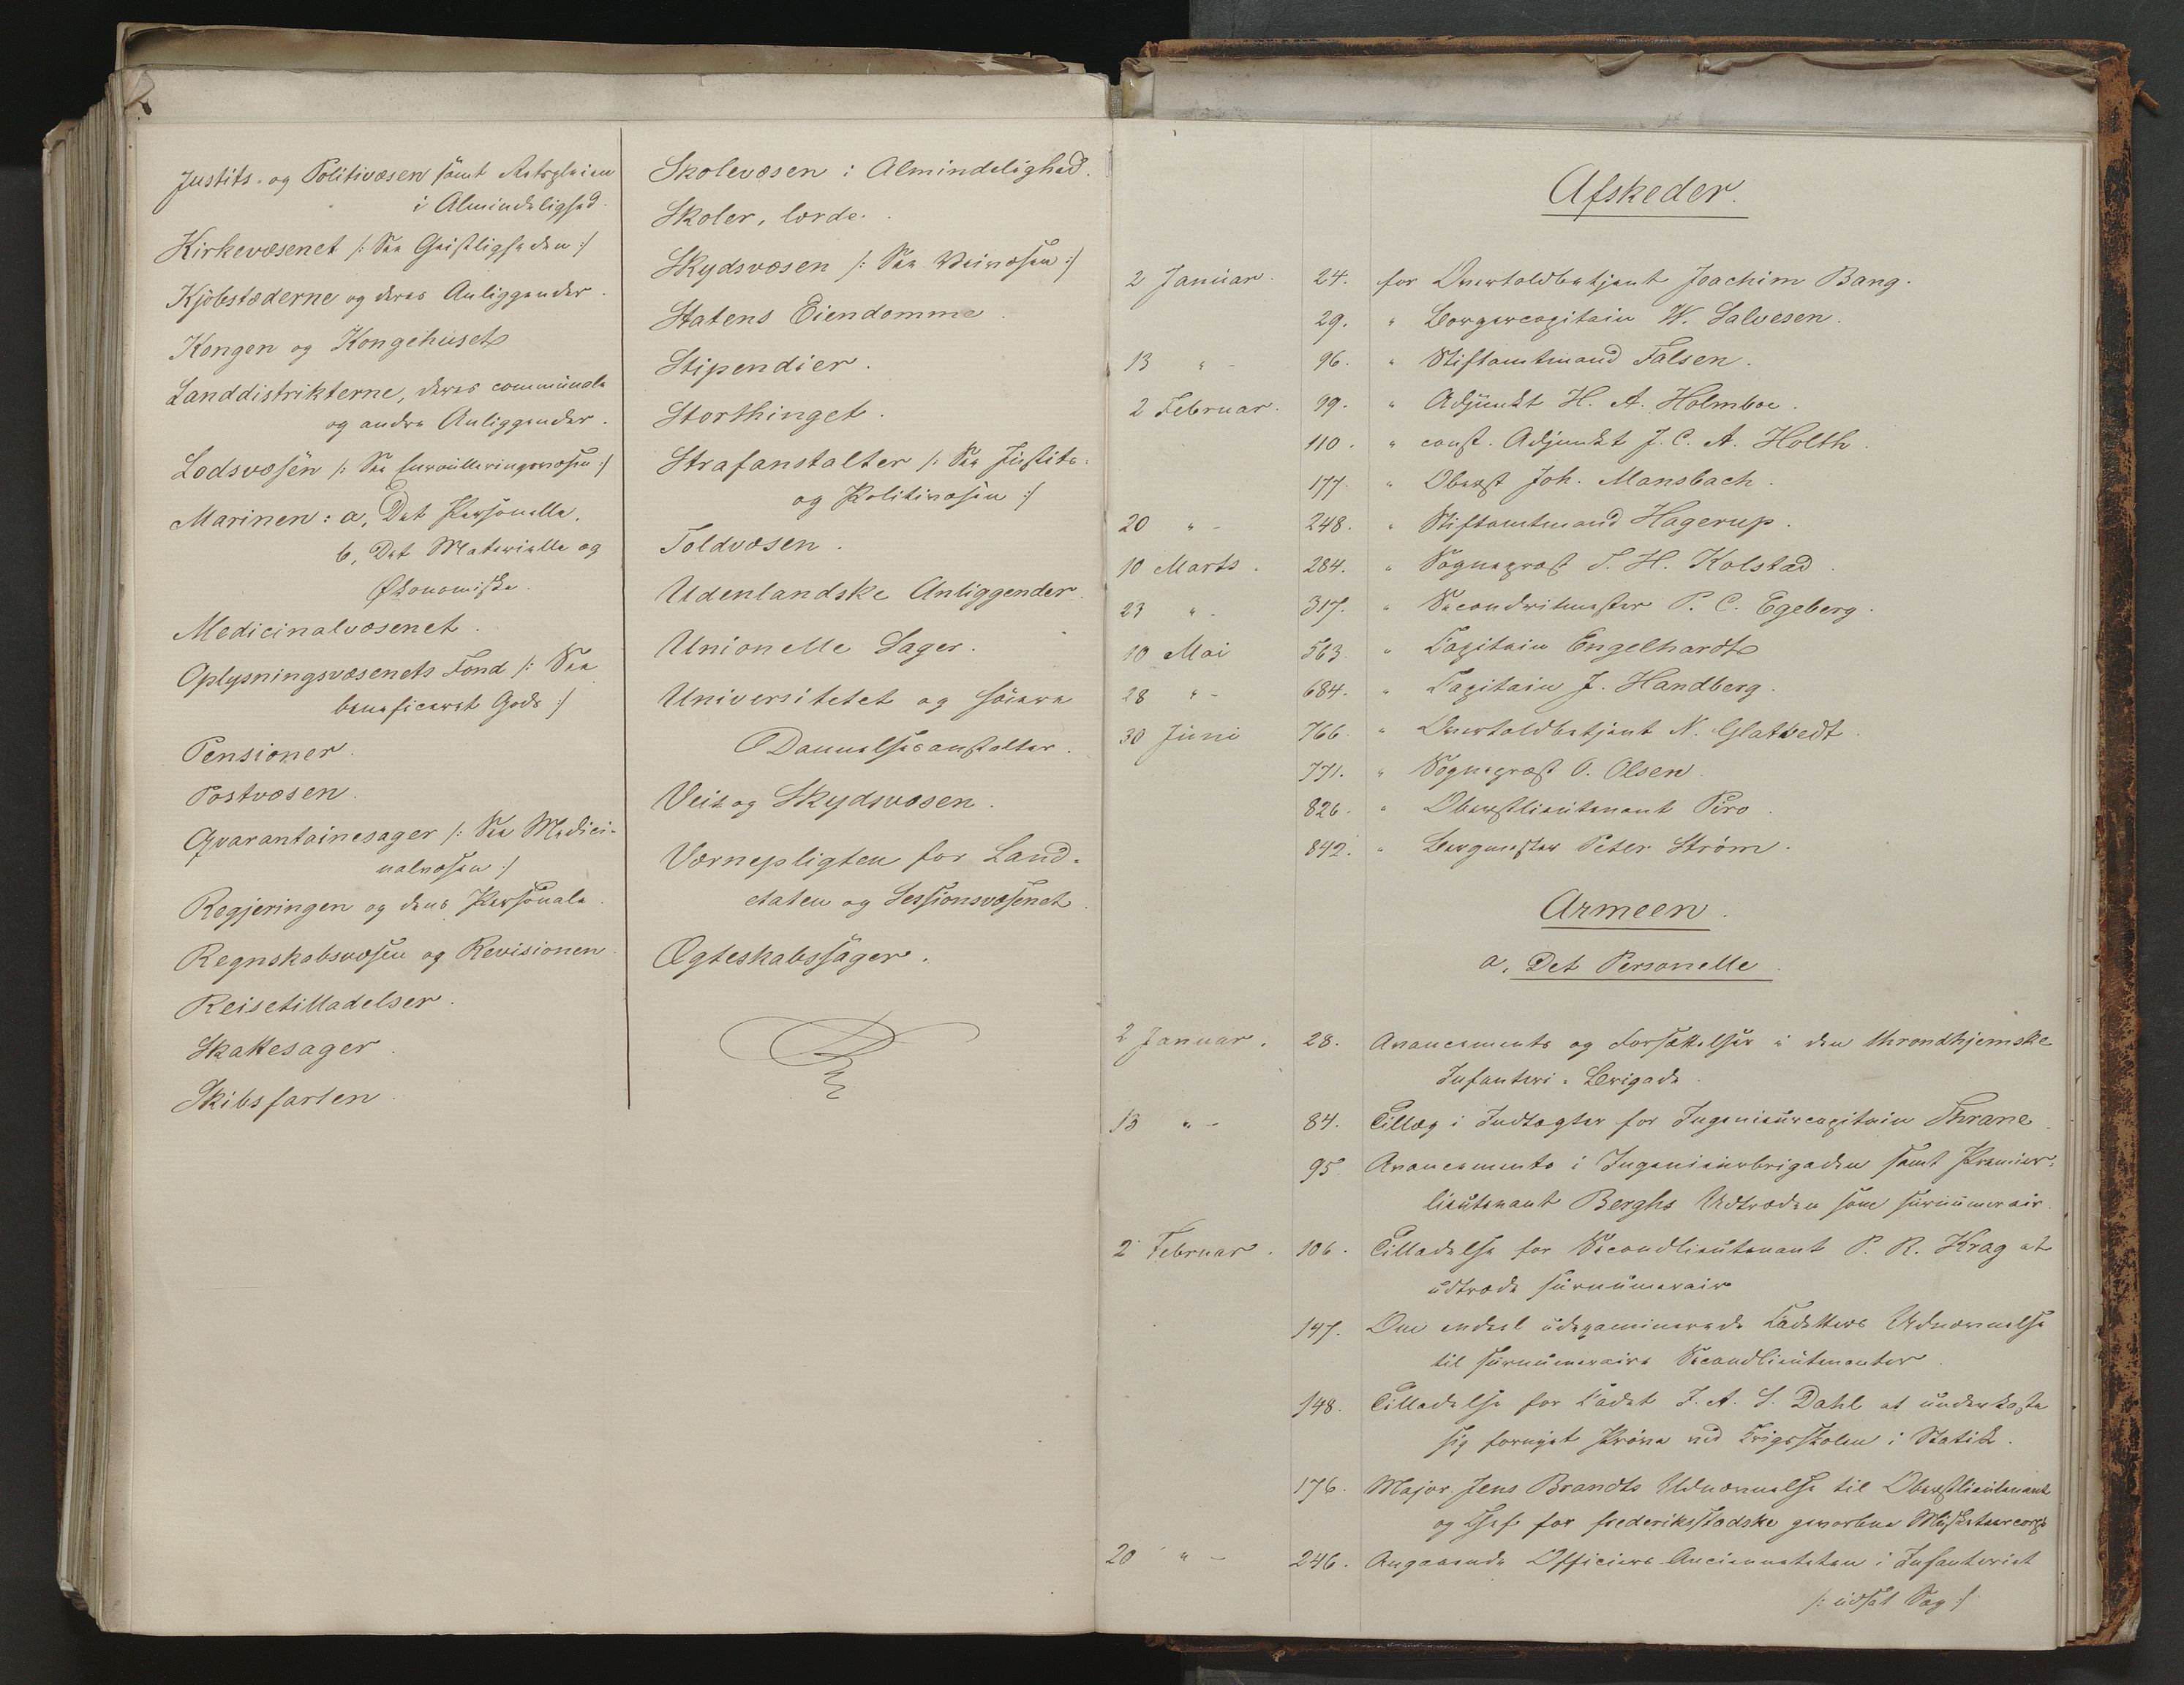 Justits- og Politivæsen samt Retspleien
i Almindelighed.
Kirkevæsenet /: See Geistligheden :/
Kjøbstæderne og deres Anliggender.
Kongen og Kongehuset
Landdistrikterne, deres communale
og andre Anliggender.
Lodsvæsen /: See :/
Marinen: a, Det Personelle.
b, Det Materielle og
Økonomiske.
Medicinalvæsenet.
Oplysningsvæsenets Fond /: See
beneficeret Gods :/
Pensioner.
Postvæsen.
Qvarantainesager /: See Medici-
nalvæsen :/
Regjeringen og dens Personale.
Regnskabsvæsen og Revisionen.
Reisetilladelser.
Skattesager.
Skibsfarten.
Skolevæsen i Almindelighed.
Skoler, lærde.
Skydsvæsen /: See Veivæsen :/
Statens Eiendomme.
Stipendier.
Storthinget.
Strafanstalter /: See Justits-
og Politivæsen :/
Toldvæsen.
Udenlandske Anliggender.
Unionelle Sager.
Universitetet og høiere
Dannelsesanstalter.
Vei- og Skydsvæsen.
Værnepligten for Land-
etaten og Sessionsvæsenet.
Ægteskabssager.
Afskeder.
2 Januar. 24. for Overtoldbetjent Joachim Bang.
29. " Borgercapitain W. Salvesen.
13 " - 96. " Stiftamtmand Falsen.
2 Februar. 19. " Adjunkt H. A. Holmboe.
110. " const. Adjunkt J. C. A. Holth.
177. " Oberst Joh. Mansbach.
20 " - 248. " Stiftamtmand Hagerup.
10 Marts. 284. " Sogneprest T. H. Kolstad.
23 " - 317. " Secondritmester P. C. Egeberg.
10 Mai 563. " Capitain Engelhardt
28 " - 684. " Capitain J. Handberg.
30 Juni 766. " Overtoldbetjent N. Glatvedt.
771. " Sogneprest O. Olsen.
826. " Oberstlieutenant Piro.
842. " Bergmester Peter Strøm.
Armeen.
a, Det Personelle.
2 Januar. 28. Avancements og Forsættelser i den throndhjemske
Infanteri-Brigade.
13 " - 84. Tillæg i Indtægter for Ingenieurcapitain Thrane.
95. Avancements i Ingenieurbrigaden samt Premier-
lieutenant Berghs Udtræden som surnumerair.
2 Februar. 106. Tilladelse for Secondlieutenant P. R. Krag at
udtræde surnumerair
147. Om endeel udexaminerede Cadetters Udnævnelse
til surnumeraire Secondlieutenanter.
148. Tilladelse for Cadet J. A. S. Dahl at underkaste
sig fornyet Prøve ved Krigsskolen i Statik.
176. Major Jens Brandts Udnævnelse til Oberstlieutenant
og Chef for frederiksstadske gevorbne Musketeercorps
20 " - 246. Angaaende Officiers-Ancienneteten i Infanteriet
/: udsat Sag :/